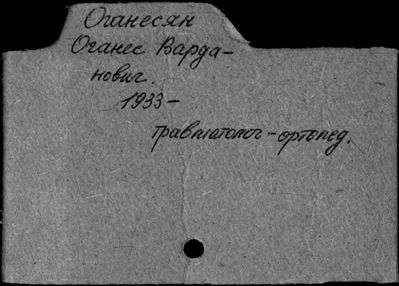 Оганесян
Оганес Варда-
нович.
1933-
травматолог-ортопед.